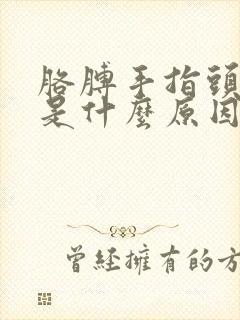 胳膊手指頭
是什麼原因
曾經擁有的方